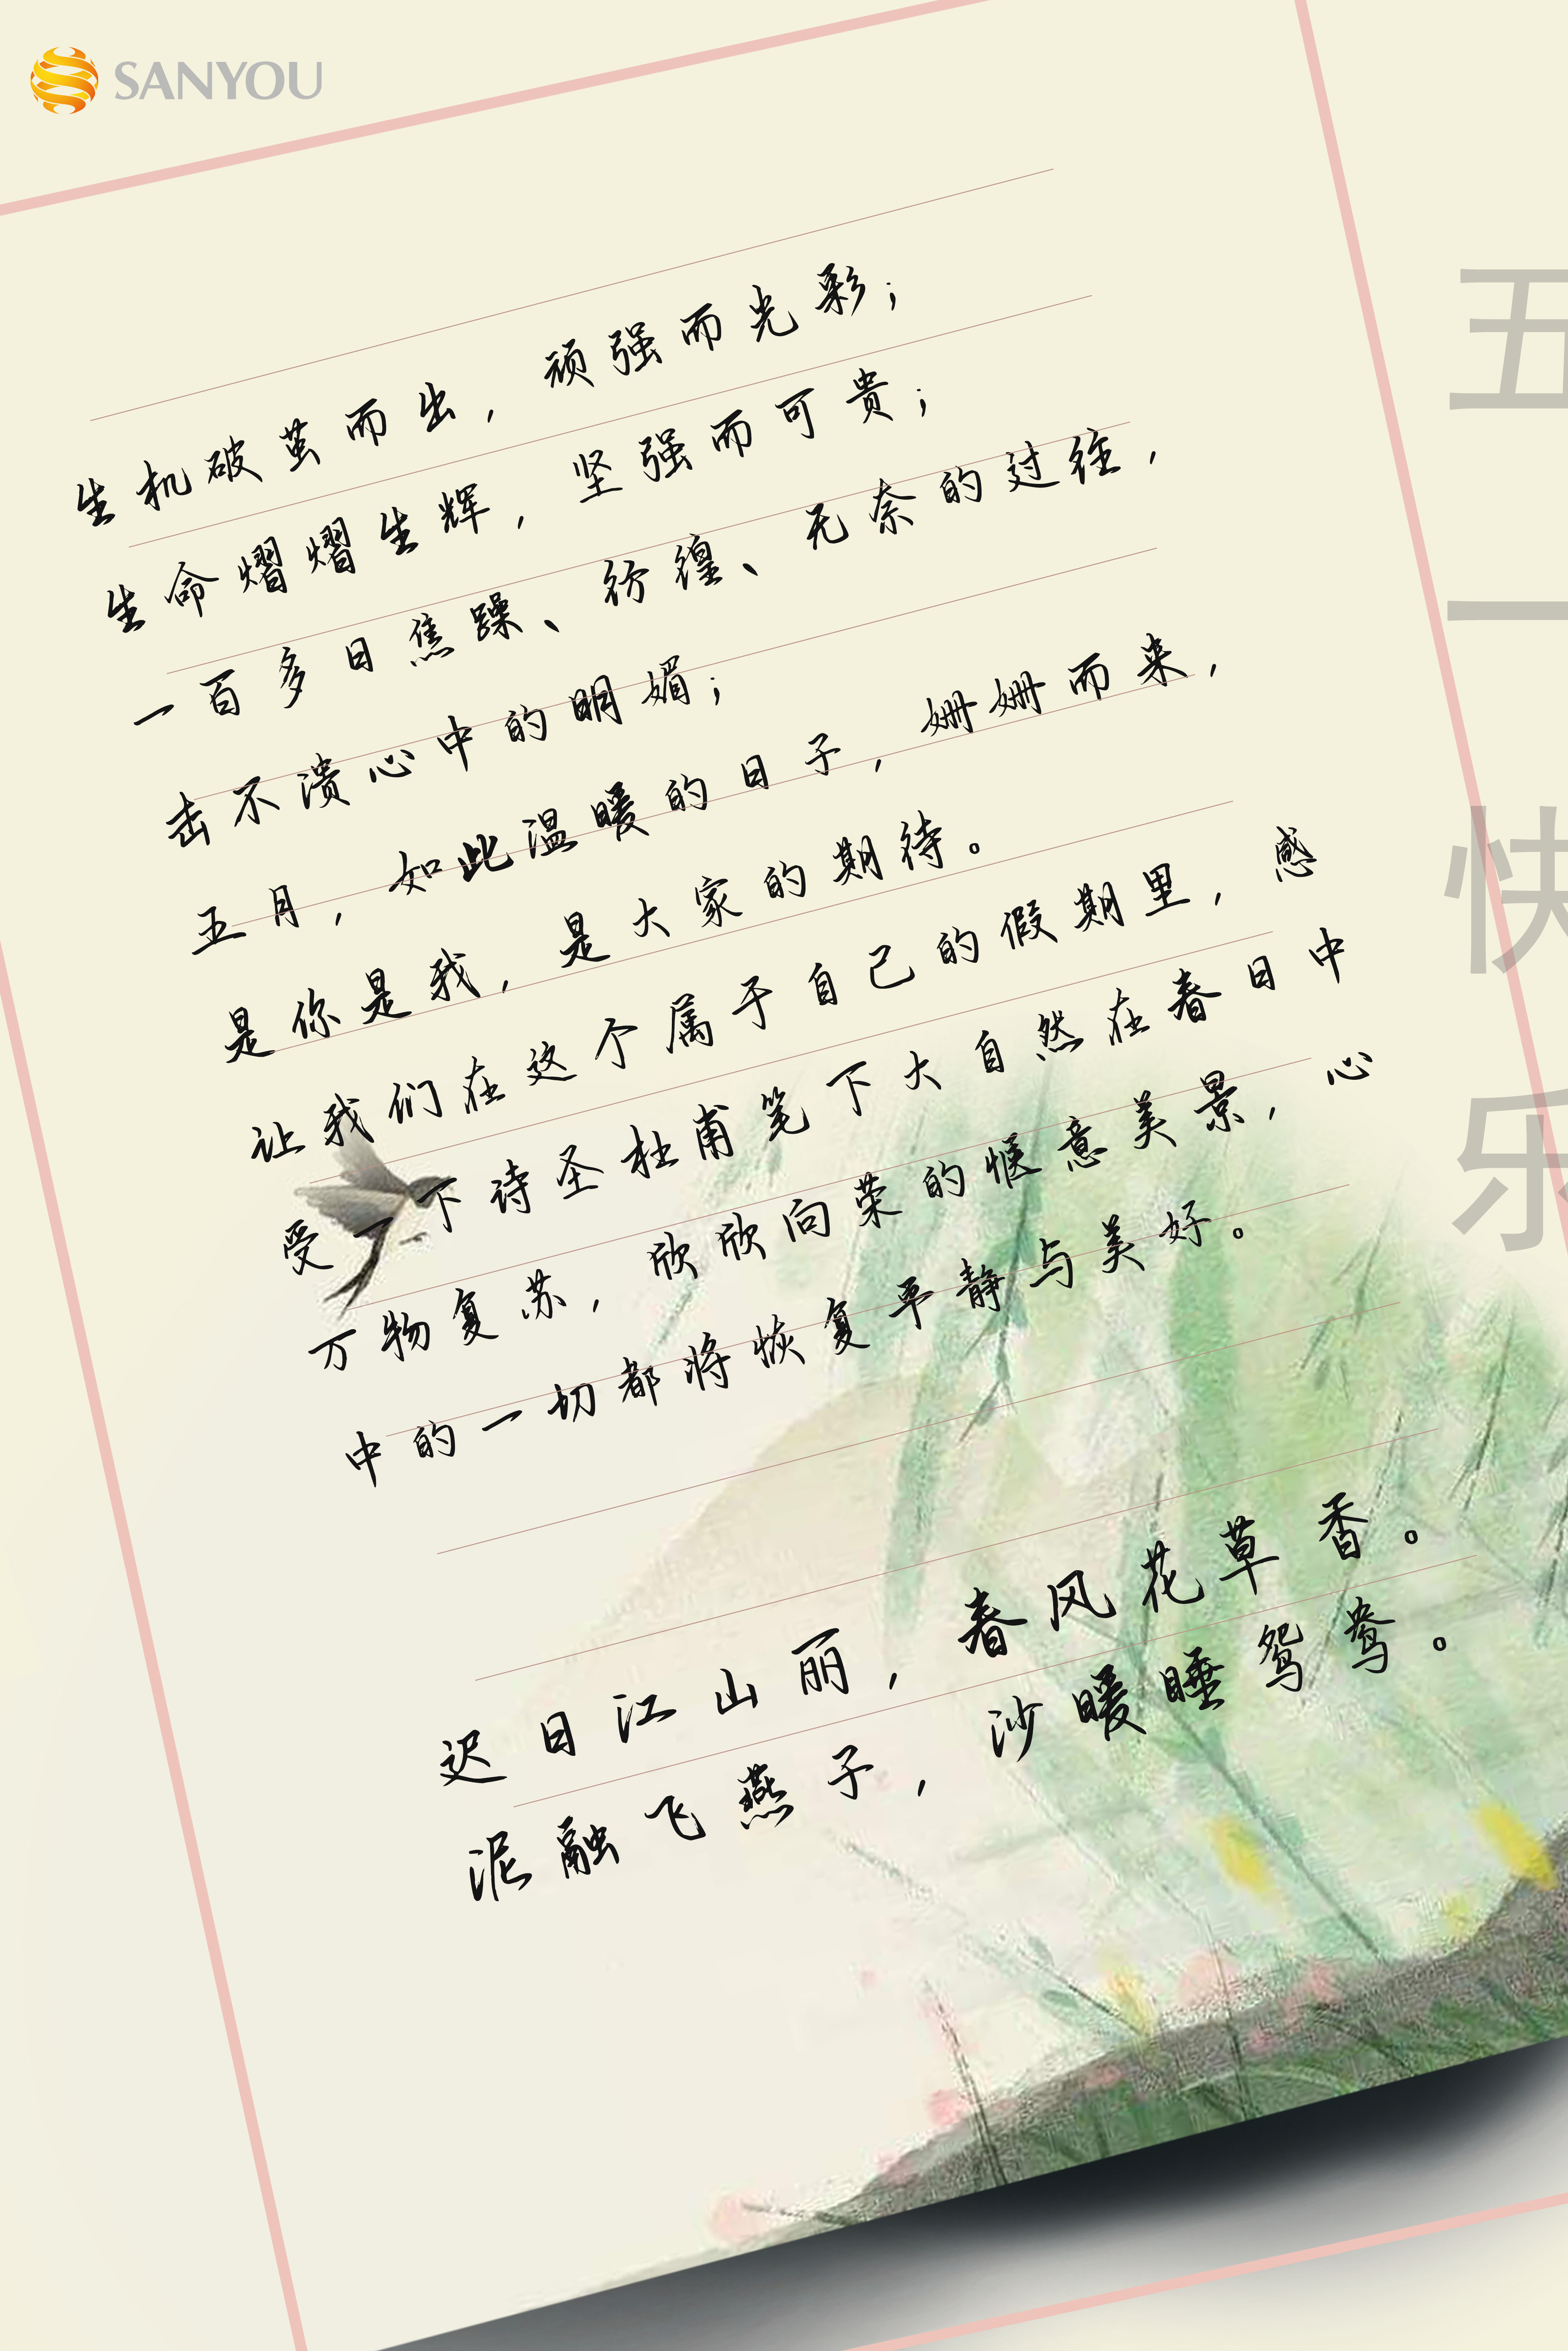 SANYOU
生机破茧而出，顽强而光彩；
生命熠熠生辉，坚强而可贵；
一百多日焦躁、彷徨、无奈的过往，
击不溃心中的明媚；
五月，如此温暖的日子，姗姗而来，
是你是我，是大家的期待。
让我们在这个属于自己的假期里，感
受一下诗圣杜甫笔下大自然在春日中
万物复苏，欣欣向荣的惬意美景，心
中的一切都将恢复平静与美好。
迟日江山丽，春风花草香。
泥融飞燕子，沙暖睡鸳鸯。
五一快乐